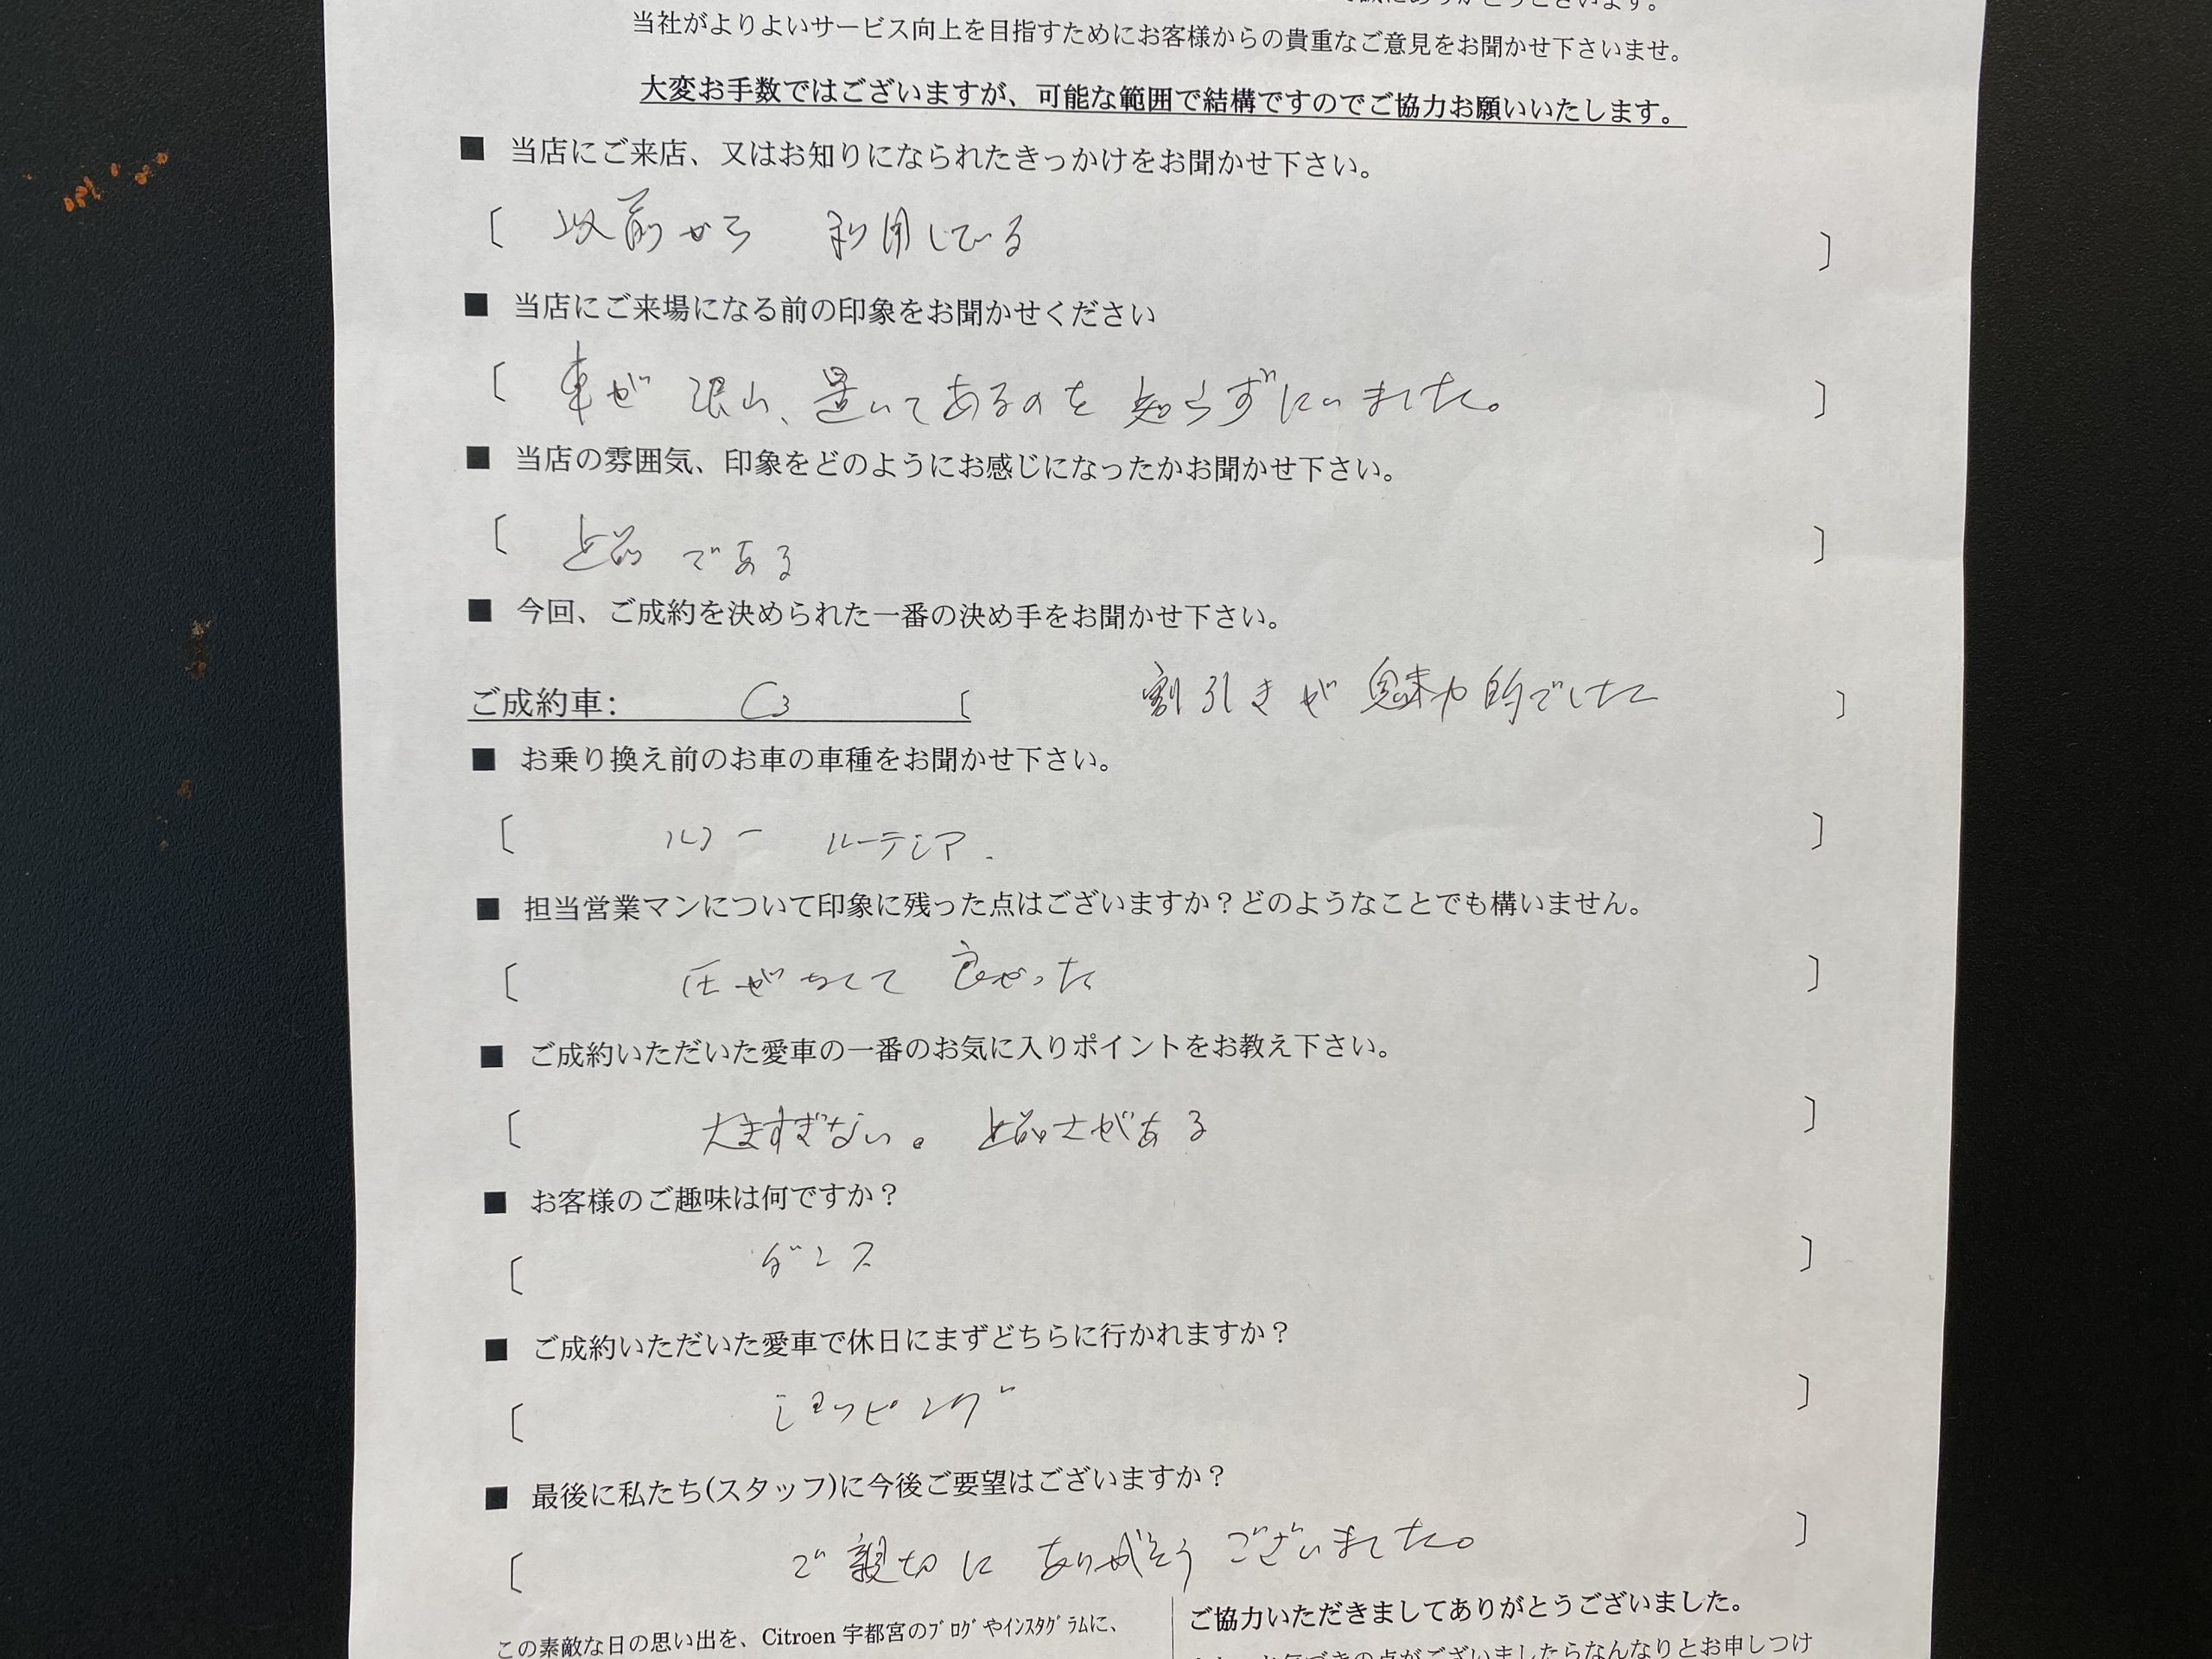 当社がよりよいサービス向上を目指すためにお客様からの貴重なご意見をお聞かせ下さいませ。
大変お手数ではございますが、可能な範囲で結構ですのでご協力お願いいたします。
■ 当店にご来店、又はお知りになられたきっかけをお聞かせ下さい。
〔 以前から 利用している 〕
■ 当店にご来場になる前の印象をお聞かせください
〔 車が 沢山、置いてあるのを 知らずにいました。 〕
■ 当店の雰囲気、印象をどのようにお感じになったかお聞かせ下さい。
〔 上品 である 〕
■ 今回、ご成約を決められた一番の決め手をお聞かせ下さい。
ご成約車： C3 〔 割引きが 魅力的でした 〕
■ お乗り換え前のお車の車種をお聞かせ下さい。
〔 ルノー ルーテシア. 〕
■ 担当営業マンについて印象に残った点はございますか？どのようなことでも構いません。
〔 圧がなくて 良かった 〕
■ ご成約いただいた愛車の一番のお気に入りポイントをお教え下さい。
〔 大きすぎない。 上品さがある 〕
■ お客様のご趣味は何ですか？
〔 ダンス 〕
■ ご成約いただいた愛車で休日にまずどちらに行かれますか？
〔 ショッピング 〕
■ 最後に私たち(スタッフ)に今後ご要望はございますか？
〔 ご親切に ありがとう ございました。 〕
この素敵な日の思い出を、Citroen 宇都宮のﾌﾞﾛｸﾞやｲﾝｽﾀｸﾞﾗﾑに、
ご協力いただきましてありがとうございました。